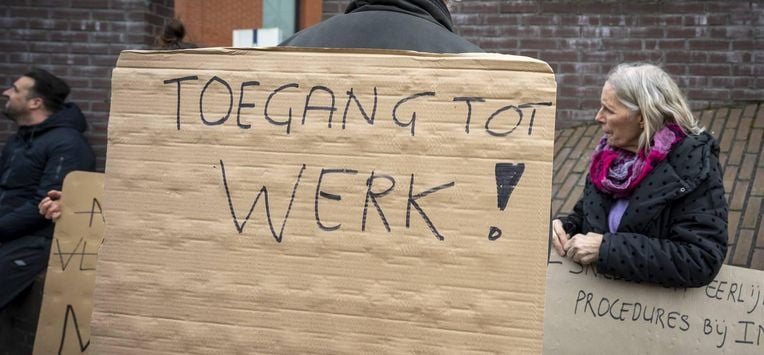 TOEGANG TOT
WERK!
EERLIJ
PROCEDURES BIJ IN